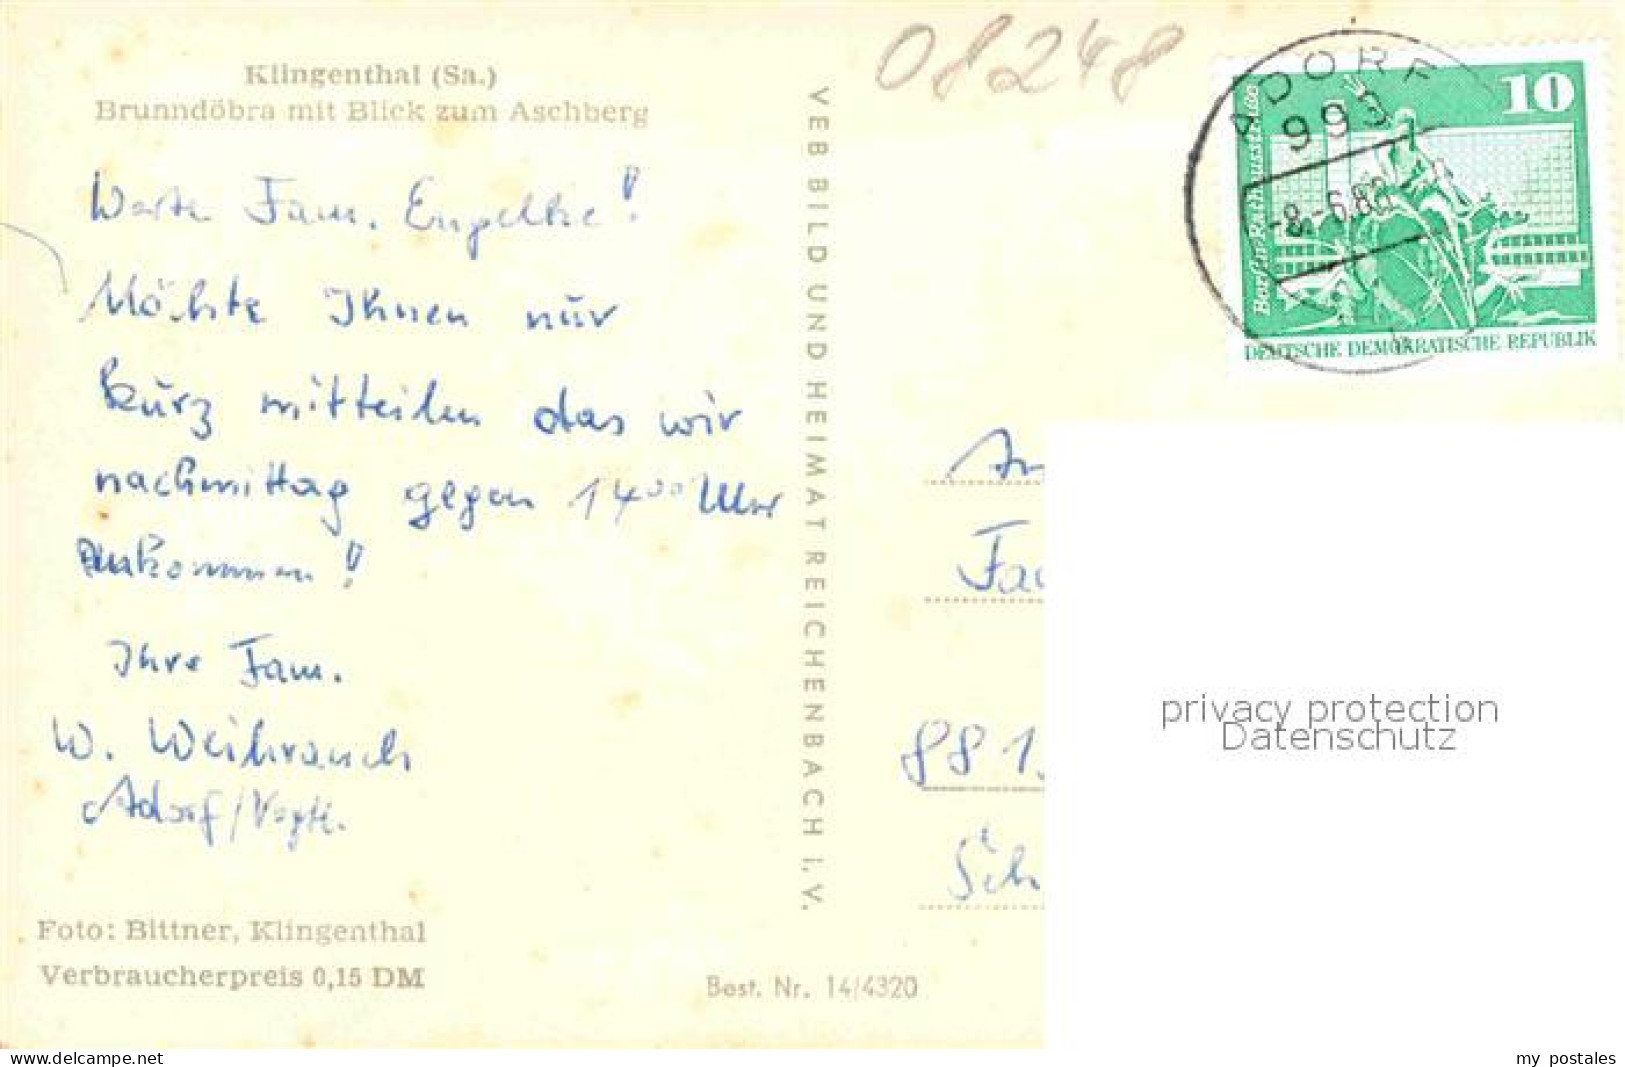 Klingenthal (Sa.)
Brunndöbra mit Blick zum Aschberg
Werte Fam. Engelke!
Möchte Ihnen nur
kurz mitteilen das wir
nachmittag gegen 14⁰⁰ Uhr
ankommen!
Ihre Fam.
W. Weihrauch
Adorf/Vogtl.
Foto: Bittner, Klingenthal
Verbraucherpreis 0,15 DM
Best. Nr. 14/4320
VEB BILD UND HEIMAT REICHENBACH I. V.
08248
ADORF
993
-8.-6.80
10
Berlin-Rathausstraße
DEUTSCHE DEMOKRATISCHE REPUBLIK
An
Fa
881
Sch
privacy protection
Datenschutz
www.delcampe.net
my_postales